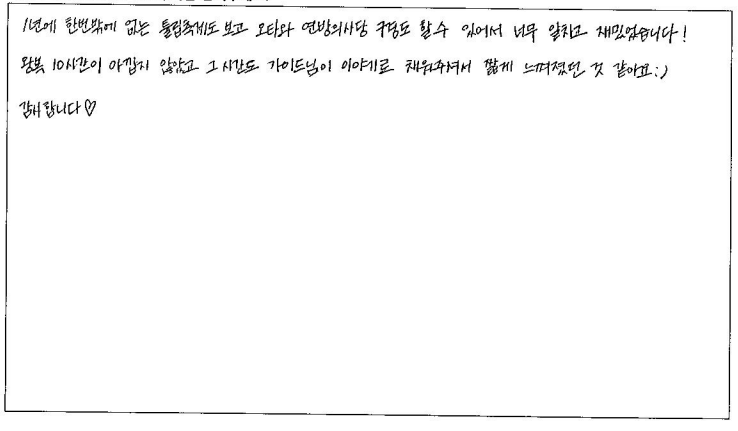 1년에 한번밖에 없는 튤립축제도 보고 오타와 연방의사당 구경도 할 수 있어서 너무 알차고 재밌었습니다!
왕복 10시간이 아깝지 않았고 그 시간도 가이드님이 이야기로 채워주셔서 짧게 느껴졌던 것 같아요:)
감사합니다♡